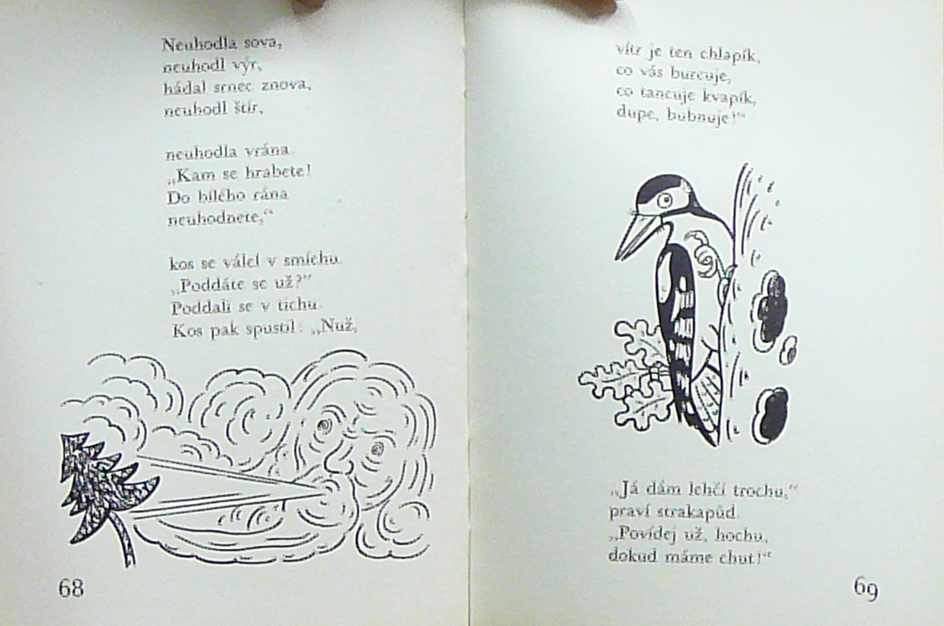 Neuhodla sova,
neuhodl výr,
hádal srnec znova,
neuhodl štír,
neuhodla vrána.
„Kam se hrabete!
Do bílého rána
neuhodnete,“
kos se válel v smíchu.
„Poddáte se už?“
Poddali se v tichu.
Kos pak spustil: „Nuž,
68
vítr je ten chlapík,
co vás burcuje,
co tancuje kvapík,
dupe, bubnuje!“
„Já dám lehčí trochu,“
praví strakapúd.
„Povídej už, hochu,
dokud máme chuť!“
69